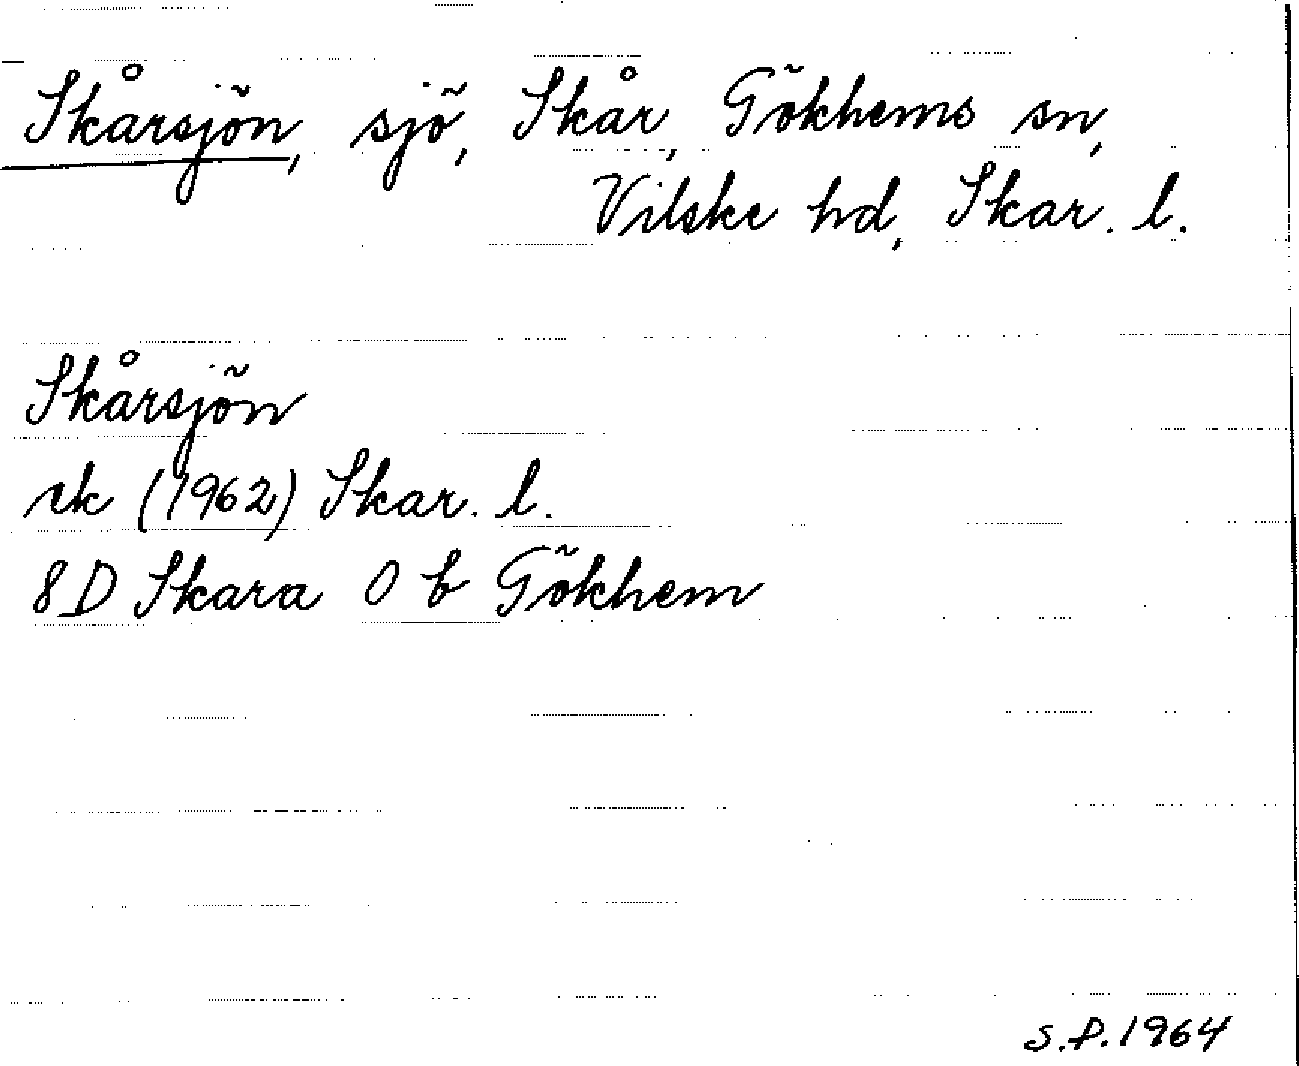 Skårsjön, sjö, Skår, Gökhems sn,
Vilske hd, Skar. l.
Skårsjön
rk (1962) Skar. l.
8D Skara O b Gökhem
S.P. 1964